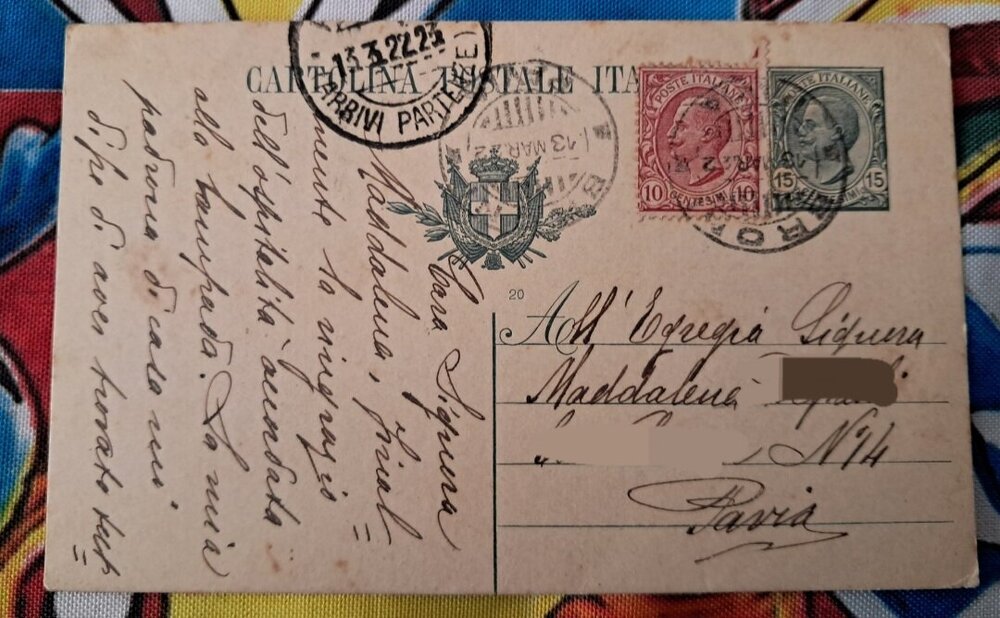 CARTOLINA POSTALE ITA
13.3.22.23
ARRIVI PARTENZE
13 MAR 22
POSTE ITALIANE
10 CENTESIMI 10
POSTE ITALIANE
15 CENTESIMI 15
20
Cara Signora
Maddalena, final=
mente la ringrazio
dell'ospitalità accordata
alla lampada. La mia
padrona di casa mi
di aver trovato tut=
All' Egregia Signora
Maddalena
N 14
Pavia